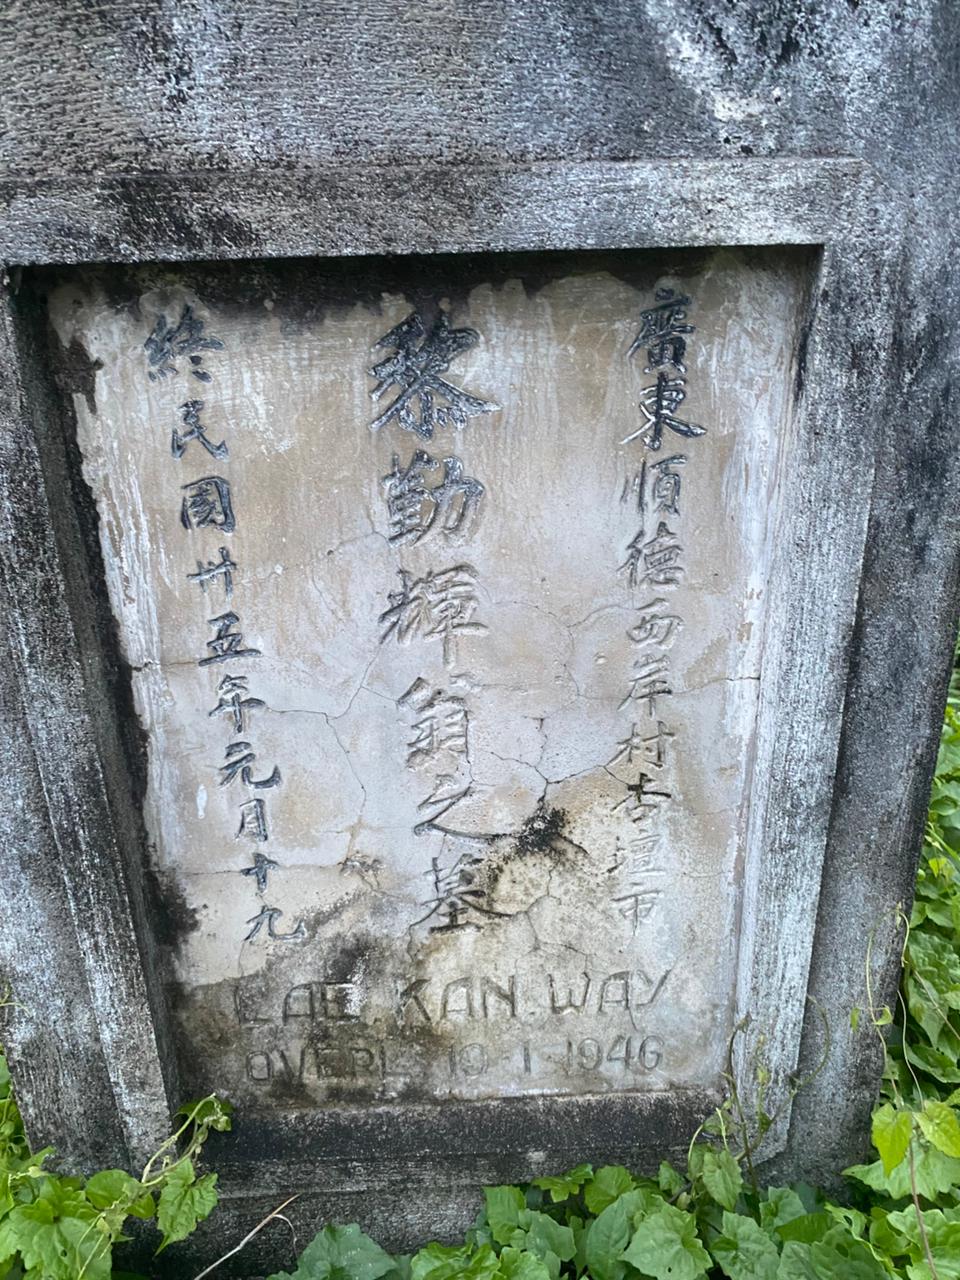 廣東順德西岸村古壇市
黎勤輝翁之墓
終民國卅五年元月十九
LAE. KAN. WAY
OVERL. 19-1-1946